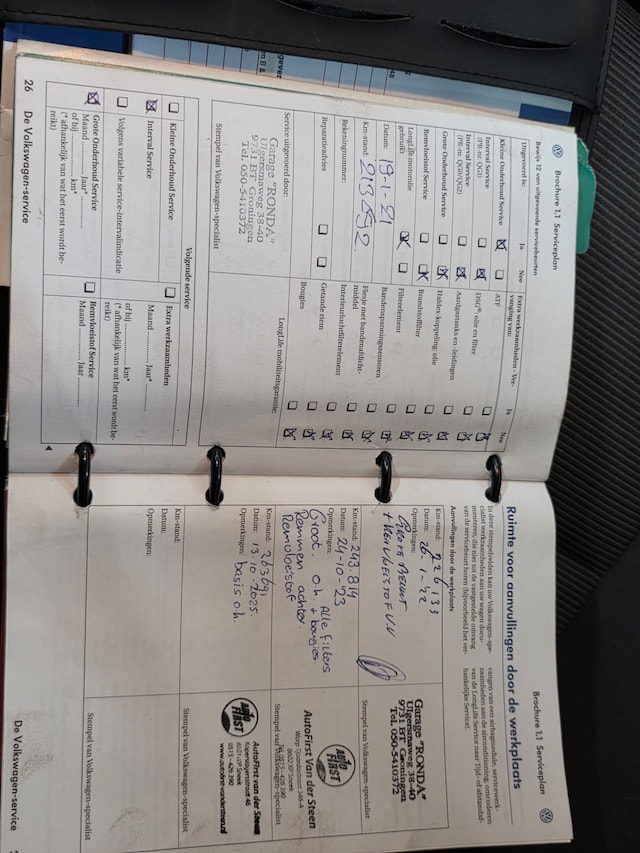 Brochure 1.1 Serviceplan
Bewijs 12 van uitgevoerde servicebeurten
Uitgevoerd is:
Ja
Nee
Kleine Onderhoud Service
Interval Service
(PR-nr. QG1)
Interval Service
(PR-nr. QG0/QG2)
Grote Onderhoud Service
Remvloeistof Service
LongLife motorolie
gebruikt
Datum: 19-1-21
Km-stand: 213 592
Rekeningnummer:
Extra werkzaamheden - Ver-
vanging van:
Ja
Nee
ATF
DSG®: olie en filter
Aardgastanks en -leidingen
Haldex-koppeling: olie
Brandstoffilter
Filterelement
Bandenspanningssensoren
Flesje met bandenafdicht-
middel
Interieurluchtfilterelement
Getande riem
Bougies
Reparatieadvies
Service uitgevoerd door:
Garage "RONDA"
Ulgersmaweg 38-40
9731 BT Groningen
Tel. 050-5410372
Stempel van Volkswagen-specialist
LongLife mobiliteitsgarantie:
Volgende service
Kleine Onderhoud Service
Interval Service
Volgens variabele service-intervalindicatie
Grote Onderhoud Service
Maand .......... Jaar*
of bij .......... km*
(* afhankelijk van wat het eerst wordt be-
reikt)
Extra werkzaamheden
Maand .......... Jaar* ..........
of bij .......... km*
(* afhankelijk van wat het eerst wordt be-
reikt)
Remvloeistof Service
Maand .......... Jaar ..........
26 De Volkswagen-service
Brochure 1.1 Serviceplan
Ruimte voor aanvullingen door de werkplaats
In deze stempelvelden kan uw Volkswagen-spe-
cialist werkzaamheden aan uw wagen docu-
menteren, die niet tot de vastgestelde omvang
van de servicebeurt horen (bijvoorbeeld het ver-
vangen van een airbagmodule, servicewerk-
zaamheden aan de airconditioning, omcoderen
van de LongLife Service naar Tijd- of afstandaf-
hankelijke Service).
Aanvullingen door de werkplaats
Km-stand: 226133
Datum: 26-1-22
Opmerkingen:
Grote Beurt
Garage "RONDA"
Ulgersmaweg 38-40
9731 BT Groningen
Tel. 050-5410372
Stempel van Volkswagen-specialist
Km-stand: 243.814
Datum: 24-10-'23
Opmerkingen: Alle filters
Groot. o.h. + bougies
Remmen achter.
Remvloeistof
AUTO FIRST
AutoFirst Van der Steen
8602 XP Sneek
Stempel van Volkswagen-specialist
Km-stand: 263691
Datum: 13.10.2025
Opmerkingen: basis o.h.
AUTO FIRST
AutoFirst van der Steen
Koperslagersstraat 46
8601 WP Sneek
0515 - 426 390
Stempel van Volkswagen-specialist
Km-stand:
Datum:
Opmerkingen:
Stempel van Volkswagen-specialist
De Volkswagen-service